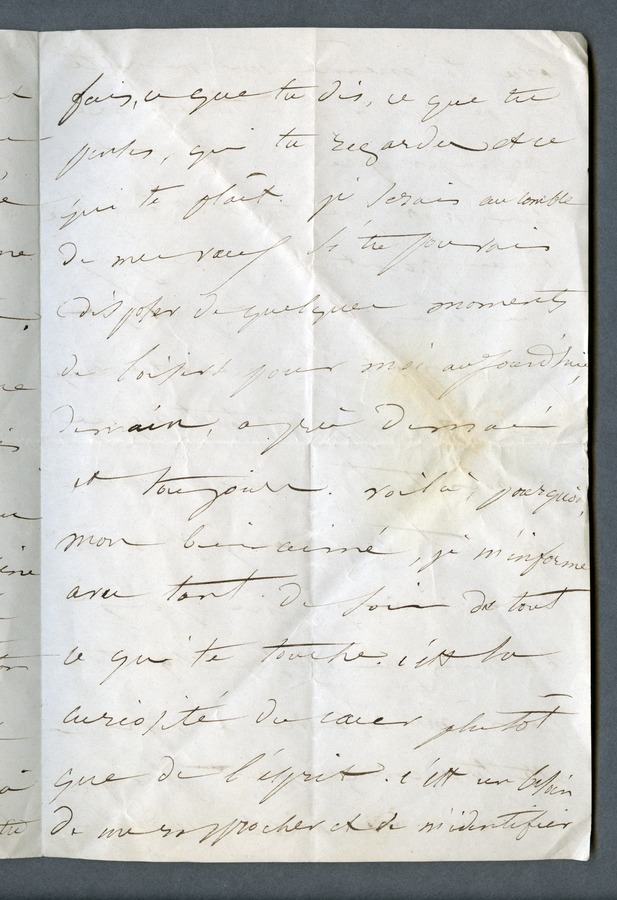 fais, ce que tu dis, ce que tu
penses, qui te regarde et ce
qui te plaît. je serais au comble
de mes vœux si tu pouvais
disposer de quelques moments
de loisirs pour moi aujourd'hui,
demain, après demain
et toujours. voilà, pourquoi,
mon bien aimé, je m'informe
avec tant de soin de tout
ce qui te touche. c'est la
curiosité du cœur plutôt
que de l'esprit. c'est un besoin
de me rapprocher et de m'identifier